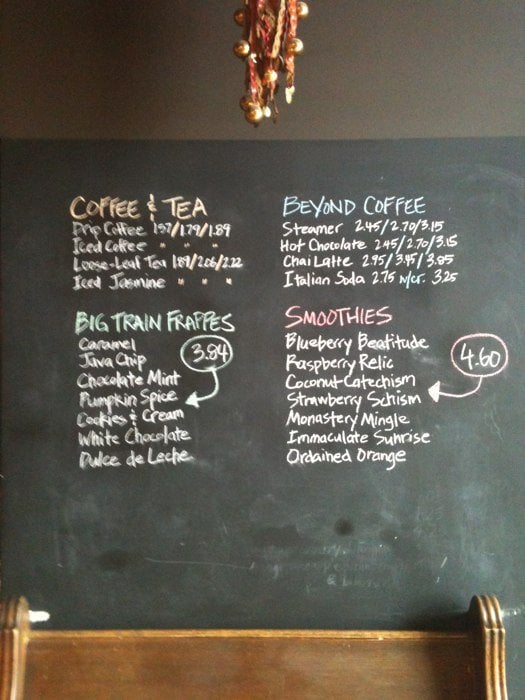 COFFEE & TEA
Drip Coffee 1.57/1.79/1.89
Iced Coffee " " "
Loose-Leaf Tea 1.89/2.06/2.22
Iced Jasmine " " "
BIG TRAIN FRAPPES
3.84
Caramel
Java Chip
Chocolate Mint
Pumpkin Spice
Cookies & Cream
White Chocolate
Dulce de Leche
BEYOND COFFEE
Steamer 2.45/2.70/3.15
Hot Chocolate 2.45/2.70/3.15
Chai Latte 2.95/3.45/3.85
Italian Soda 2.75 w/cr. 3.25
SMOOTHIES
4.60
Blueberry Beatitude
Raspberry Relic
Coconut Catechism
Strawberry Schism
Monastery Mingle
Immaculate Sunrise
Ordained Orange